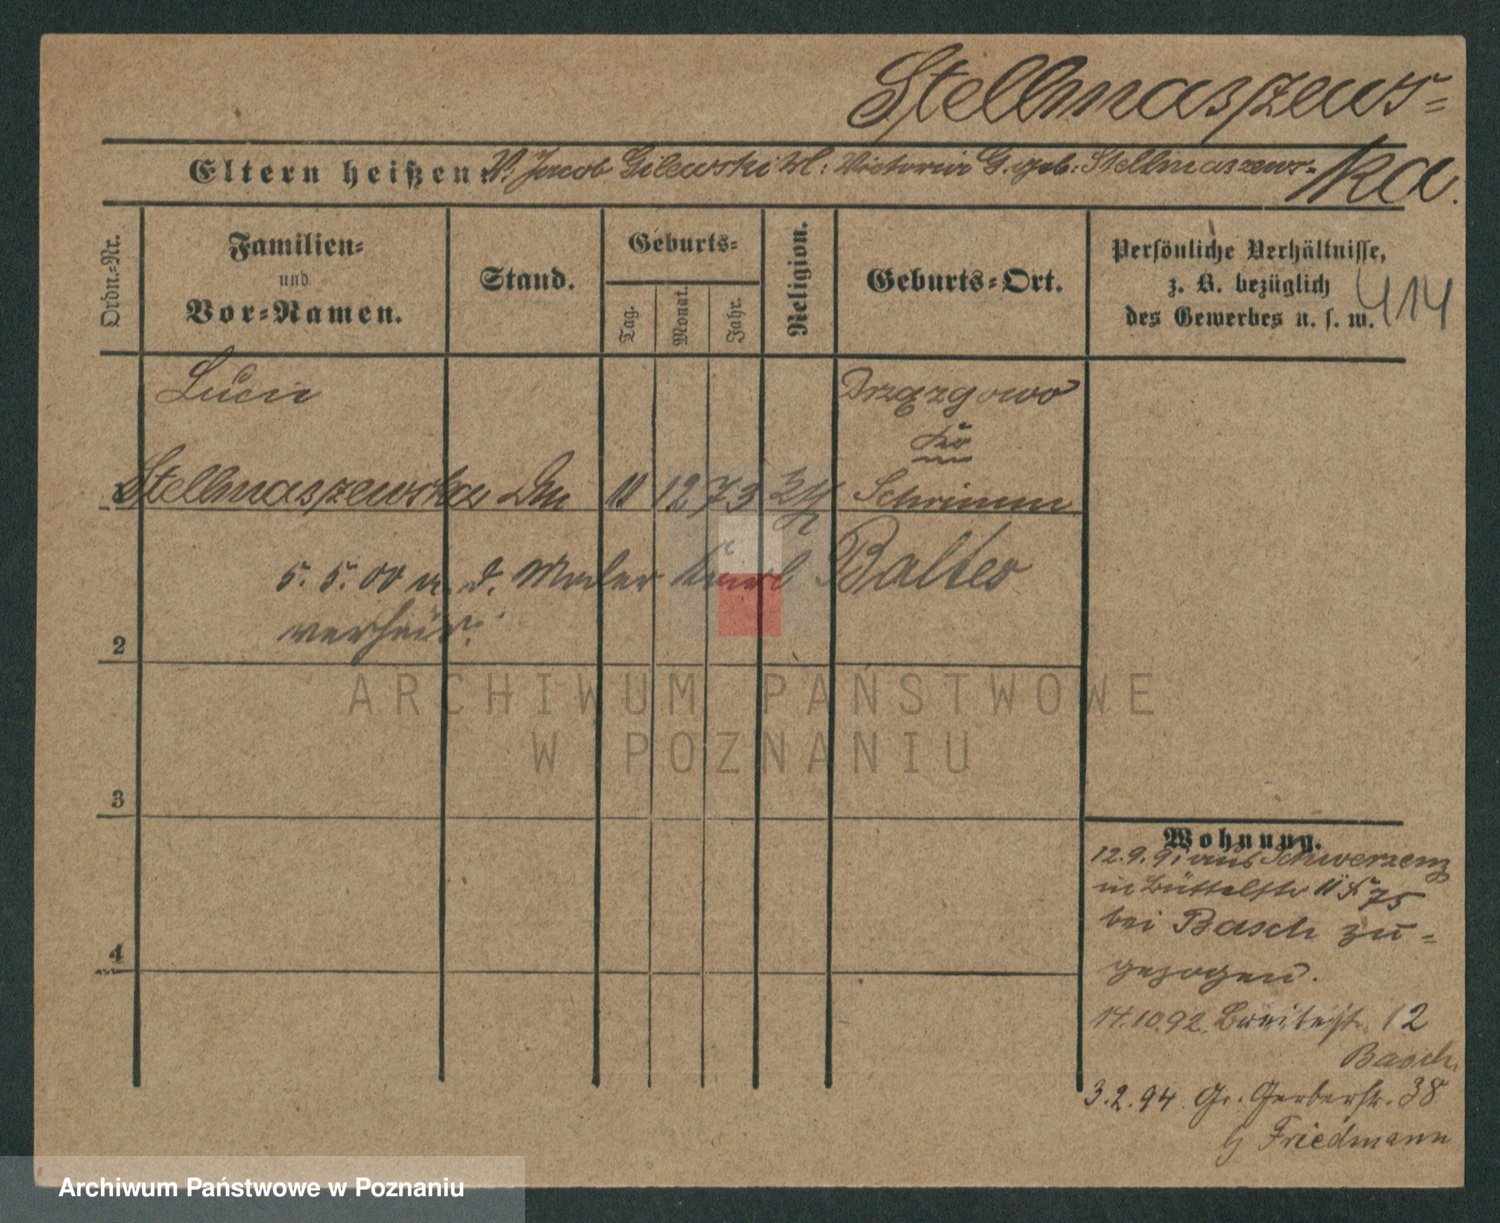 Stellmaszews=
ka.
Eltern heißen: V: Jacob Gilewski M: Victoria G. geb: Stellmaszews-
Ordn.=Nr.
Familien=
und
Vor=Namen.
Stand.
Geburts=
Tag.
Monat.
Jahr.
Religion.
Geburts=Ort.
Persönliche Verhältnisse,
z. B. bezüglich
des Gewerbes u. s. w.
414
Lucie
Stellmaszewska
11 12 73
Drzązgowo
Schrimm
5. 5. 00 m. d. Maler Karl Balter
verheir.
2
3
4
Wohnung.
12.9.91 aus Schwersenz
in Büttelstr 11
75
bei Basch zu=
gezogen.
14.10.92. Breitestr. 12
Basch.
3.2.94 Gr. Gerberstr. 38
b Friedmann
ARCHIWUM PAŃSTWOWE
W POZNANIU
Archiwum Państwowe w Poznaniu